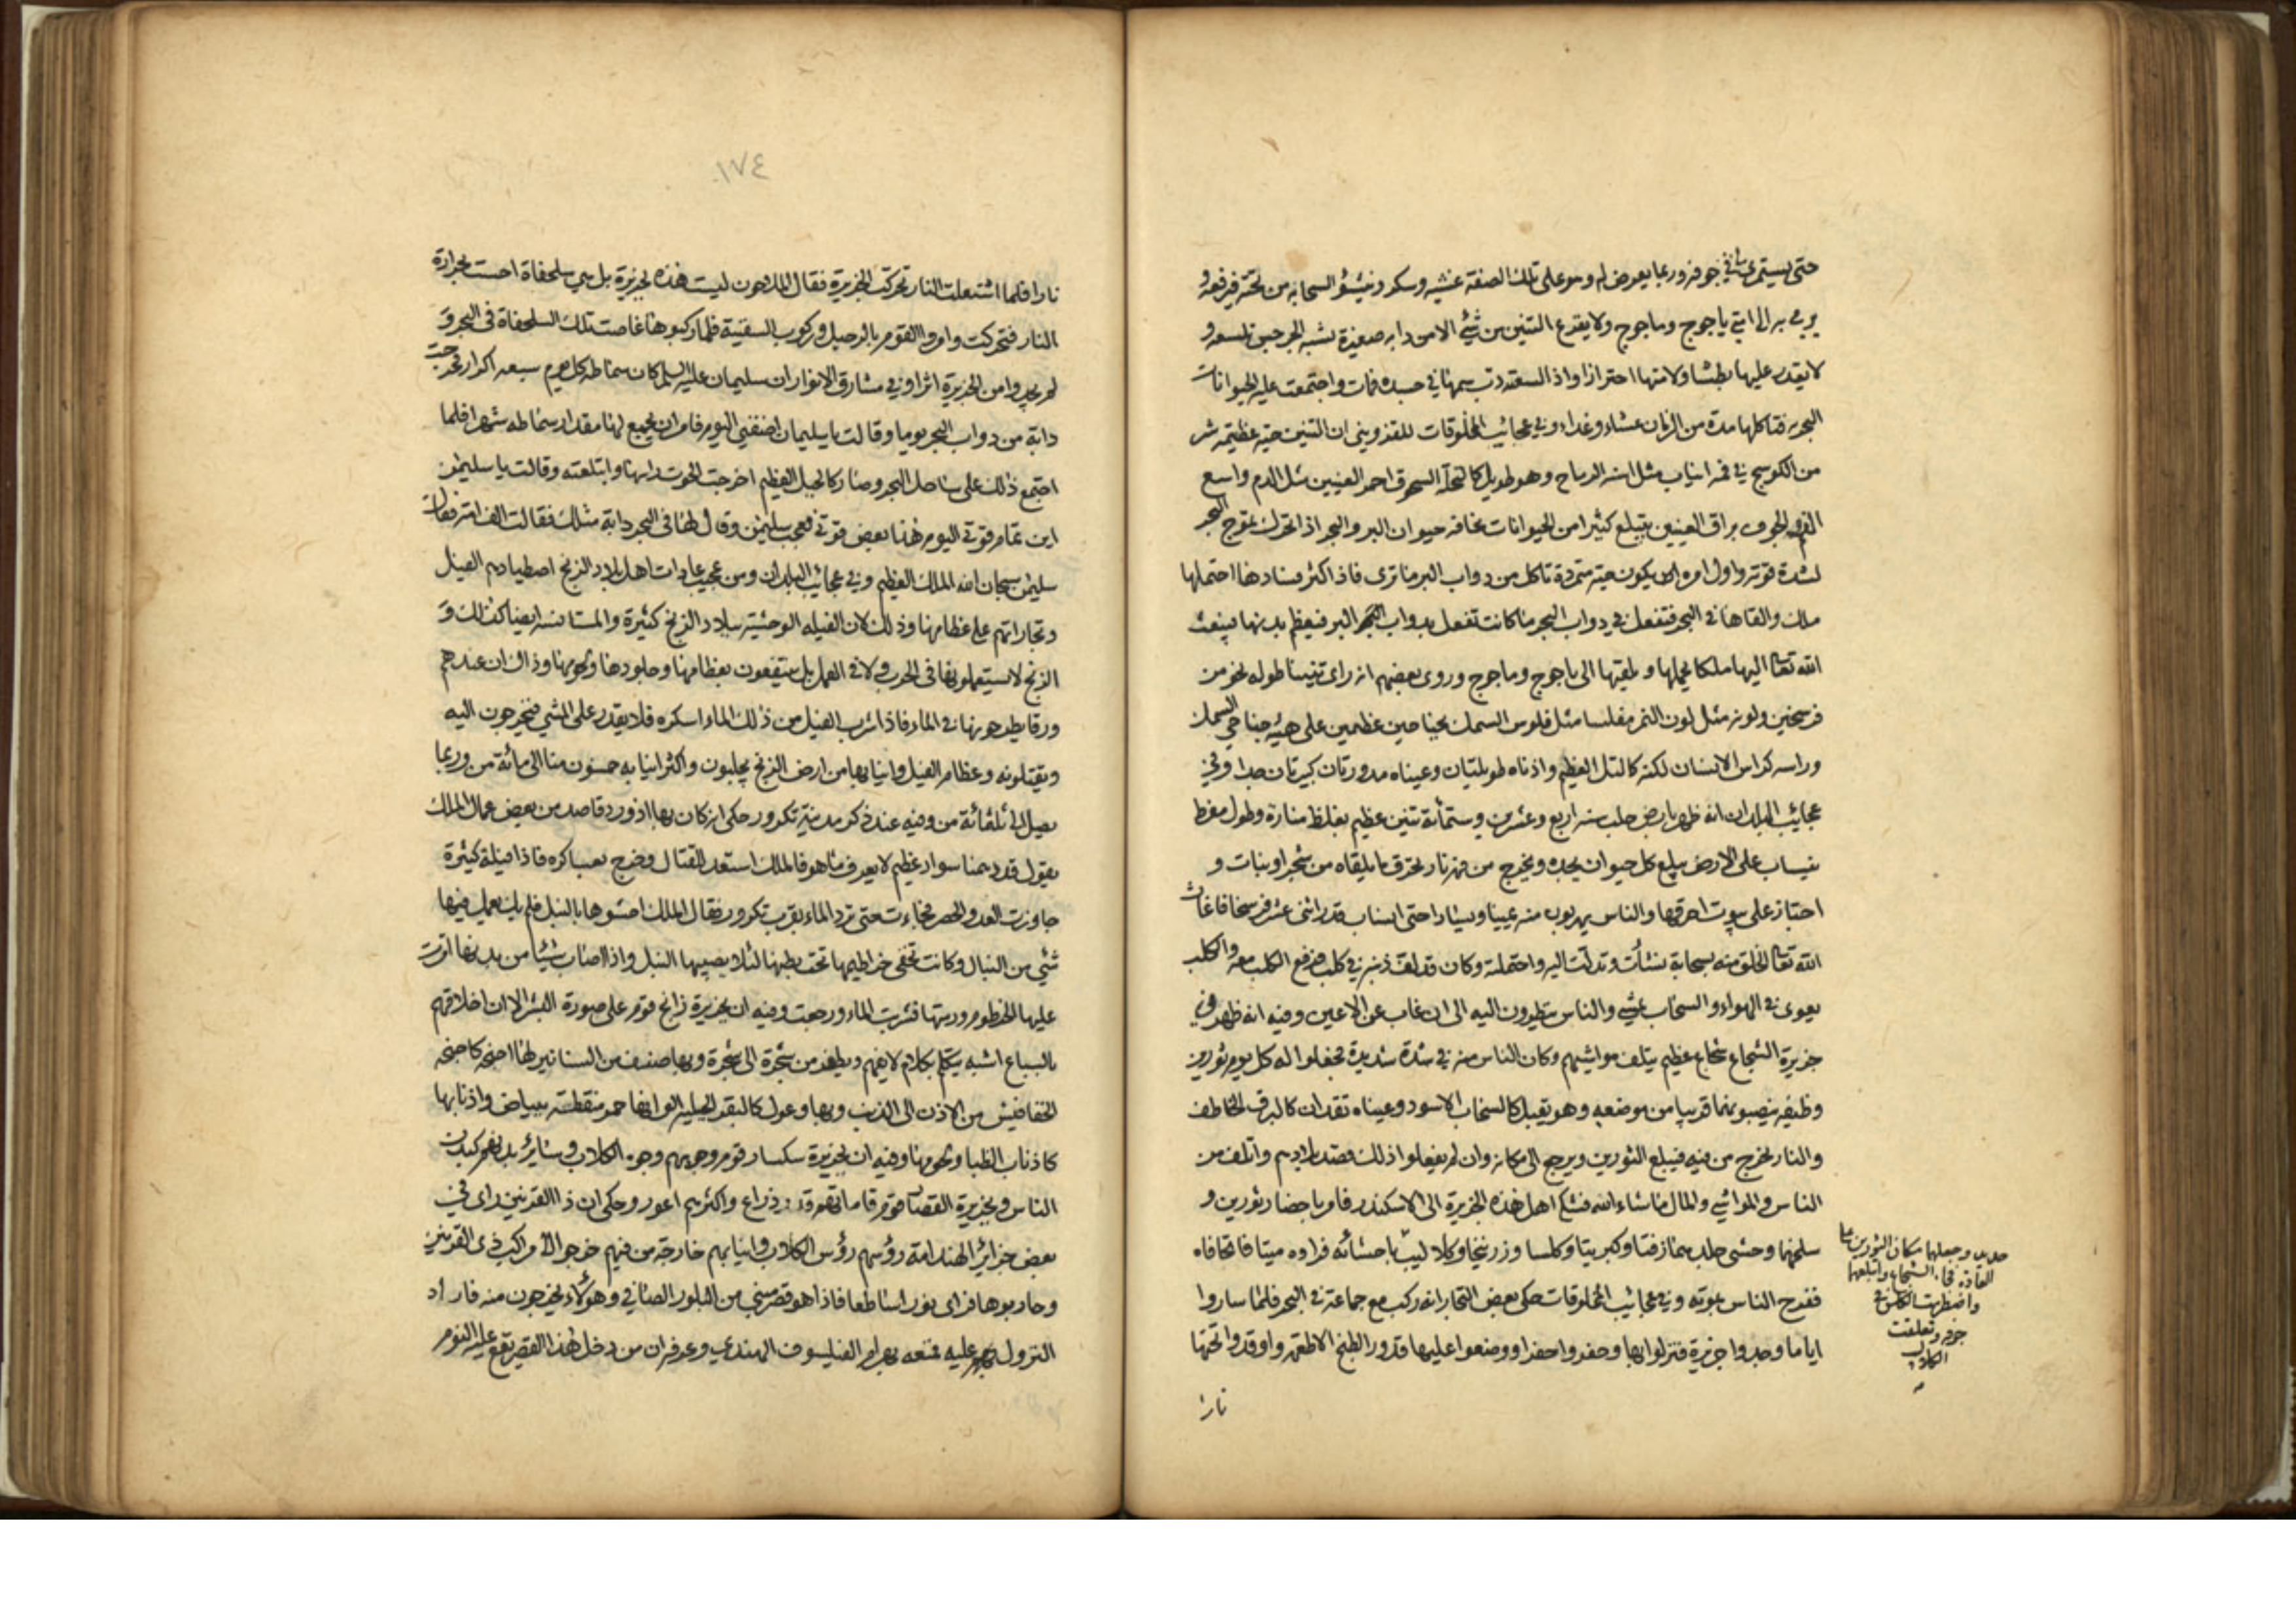 حتى يستمرئ ما في جوفه وربما يعرض له وهو على تلك الصفة غشية وسكر وينشؤ السحابة من تحته فيرفعه و
يرمي به الى ياجوج وماجوج ولا يفزع التنين من شئ الا من دابة صغيرة تشبه الجرجس تلسعه و
لا يقدر عليها بطشا ولا منها احترازا واذا لسعته دب سمها في جسده فمات واجتمعت عليه الحيوانات
البحرية فتاكلها مدة من الزمان عشاء وغداء وفي عجائب المخلوقات للقزويني ان التنين حية عظيمة شر
من الكوسج في فمه انياب مثل اسنة الرماح وهو طويل كالنخلة السحوق احمر العينين مثل الدم واسع
الفم والجوف براق العينين يبتلع كثيرا من الحيوانات يخافه حيوان البر والبحر اذا تحرك يموج البحر
لشدة قوته واول امره ان يكون حية متمردة تاكل من دواب البر ما ترى فاذا كثر فسادها احتملها
ملك والقاها في البحر فتفعل في دواب البحر ما كانت تفعل بدواب البر فيعظم بدنها فيبعث
الله تعالى اليها ملكا يحملها ويلقيها الى ياجوج وماجوج وروى بعضهم انه راى تنينا طوله نحو من
فرسخين ولونه مثل لون النمر مفلسا مثل فلوس السمك بجناحين عظيمين على هيئة جناحي السمك
وراسه كراس الانسان لكنه كالتل العظيم واذناه طويلتان وعيناه مدورتان كبيرتان جدا وفي
عجائب البلدان انه ظهر بارض حلب سنة اربع وعشرين وستمائة تنين عظيم بغلظ منارة وطول مفرط
ينساب على الارض يبلع كل حيوان يجده ويخرج من فمه نار تحرق ما يلقاه من شجر او نبات و
اجتاز على بيوت احرقها والناس يهربون منه يمينا ويسارا حتى انساب قدر اثنى عشر فرسخا فاغاث
الله تعالى الخلق منه بسحابة نشأت وتدلت اليه واحتملته وكان قد لف ذنبه في كلب فرفع الكلب معه والكلب
يعوى في الهواء والسحاب يمشي والناس ينظرون اليه الى ان غاب عن الاعين وفيه انه ظهر في
جزيرة الشجاع شجاع عظيم يتلف مواشيهم وكان الناس منه في شدة شديدة فجعلوا له كل يوم ثورين
وظيفة ينصبونهما قريبا من موضعه وهو يقبل كالسحاب الاسود وعيناه تقدان كالبرق الخاطف
والنار تخرج من فيه فيبلع الثورين ويرجع الى مكانه وان لم يفعلوا ذلك قصد بلادهم واتلف من
الناس والمواشي والمال ما شاء الله فشكى اهل هذه الجزيرة الى الاسكندر فامر باحضار ثورين و
سلخهما وحشى جلدهما زفتا وكبريتا وكلسا وزرنيخا وكلاليب
حديد وجعلهما مكان الثورين على
العادة فجاء الشجاع وابتلعهما
واضطرمت الكلس في
جوفه وتعلقت
الكلاليب
باحشائه فراوه ميتا فاتحا فاه
ففرح الناس بموته وفي عجائب المخلوقات حكى بعض التجار انه ركب مع جماعة في البحر فلما ساروا
اياما وجدوا جزيرة فنزلوا بها وحفروا حفرا ووضعوا عليها قدور الطبخ الاطعمة واوقدوا تحتها
نارا
١٧٤
نارا فلما اشتعلت النار تحركت الجزيرة فقال الملاحون ليست هذه بجزيرة بل هي سلحفاة احست بحرارة
النار فتحركت وامروا القوم بالرحيل وركوب السفينة فلما ركبوها غاصت تلك السلحفاة في البحر و
لم يجدوا من الجزيرة اثرا وفي مشارق الانوار ان سليمان عليه السلام كان سماطه كل يوم سبعة اكرار فخرجت
دابة من دواب البحر يوما وقالت يا سليمان اضفني اليوم فامر ان يجمع لها مقدار سماطه شهرا فلما
اجتمع ذلك على ساحل البحر وصار كالجبل العظيم اخرجت الحوت راسها وابتلعته وقالت يا سليمن
اين تمام قوتي اليوم هذا بعض قوتي فعجب سليمن وقال لها في البحر دابة مثلك فقالت الف امة فقال
سليمن سبحان الله الملك العظيم وفي عجائب البلدان ومن عجيب عادات اهل بلاد الزنج اصطيادهم الفيل
وتجاراتهم على عظامها وذلك لان الفيلة الوحشية ببلاد الزنج كثيرة والمستانسة ايضا كذلك و
الزنج لا يستعملونها في الحرب ولا في العمل بل ينتفعون بعظامها وجلودها ولحومها وذاك ان عندهم
ورقا يطرحونها في الماء فاذا شرب الفيل من ذلك الماء اسكره فلا يقدر على المشي فيخرجون اليه
ويقتلونه وعظام الفيل وانيابها من ارض الزنج يجلبون واكثر انيابه خمسون منا الى مائة من وربما
يصل الى ثلثمائة من وفيه عند ذكر مدينة تكرور حكى انه كان بها اذ ورد قاصد من بعض عمال الملك
يقول قد دهمنا سواد عظيم لا يعرف ما هو فالملك استعد للقتال وخرج بعساكره فاذا فيلة كثيرة
جاوزت العد والحصر فجاءت حتى ترد الماء بقرب تكرور فقال الملك احشوها بالنبل فلم يك يعمل فيها
شئ من النبال وكانت تخفى خراطيمها تحت بطنها لئلا يصيبها النبل واذا اصاب شيئا من بدنها امرت
عليها الخرطوم ورمتها فشربت الماء ورجعت وفيه ان بجزيرة زانج قوم على صورة البشر الا ان اخلاقهم
بالسباع اشبه يتكلم بكلام لا يفهم ويطفر من شجرة الى شجرة وبها صنف من السنانير لها اجنحة كاجنحة
الخفافيش من الاذن الى الذنب وبها وعول كالبقر الجبلية الوانها حمر منقطة ببياض واذنابها
كاذناب الظبا ولحومها وفيه ان بجزيرة سكسار قوم وجوههم وجوه الكلاب وسائر بدنهم كبدن
الناس وبجزيرة القصار قوم قاماتهم قدر ذراع واكثرهم اعور وحكى ان ذا القرنين راى في
بعض جزائر الهند امة رؤسهم رؤس الكلاب وانيابهم خارجة من فيهم خرجوا الى مراكب ذى القرنين
وحاربوها فراى نورا ساطعا فاذا هو قصر مبني من البلور الصافي وهؤلاء يخرجون منه فاراد
النزول عليه فمنعه بهرام الفيلسوف الهندي وعرفه ان من دخل هذا القصر يقع عليه النوم